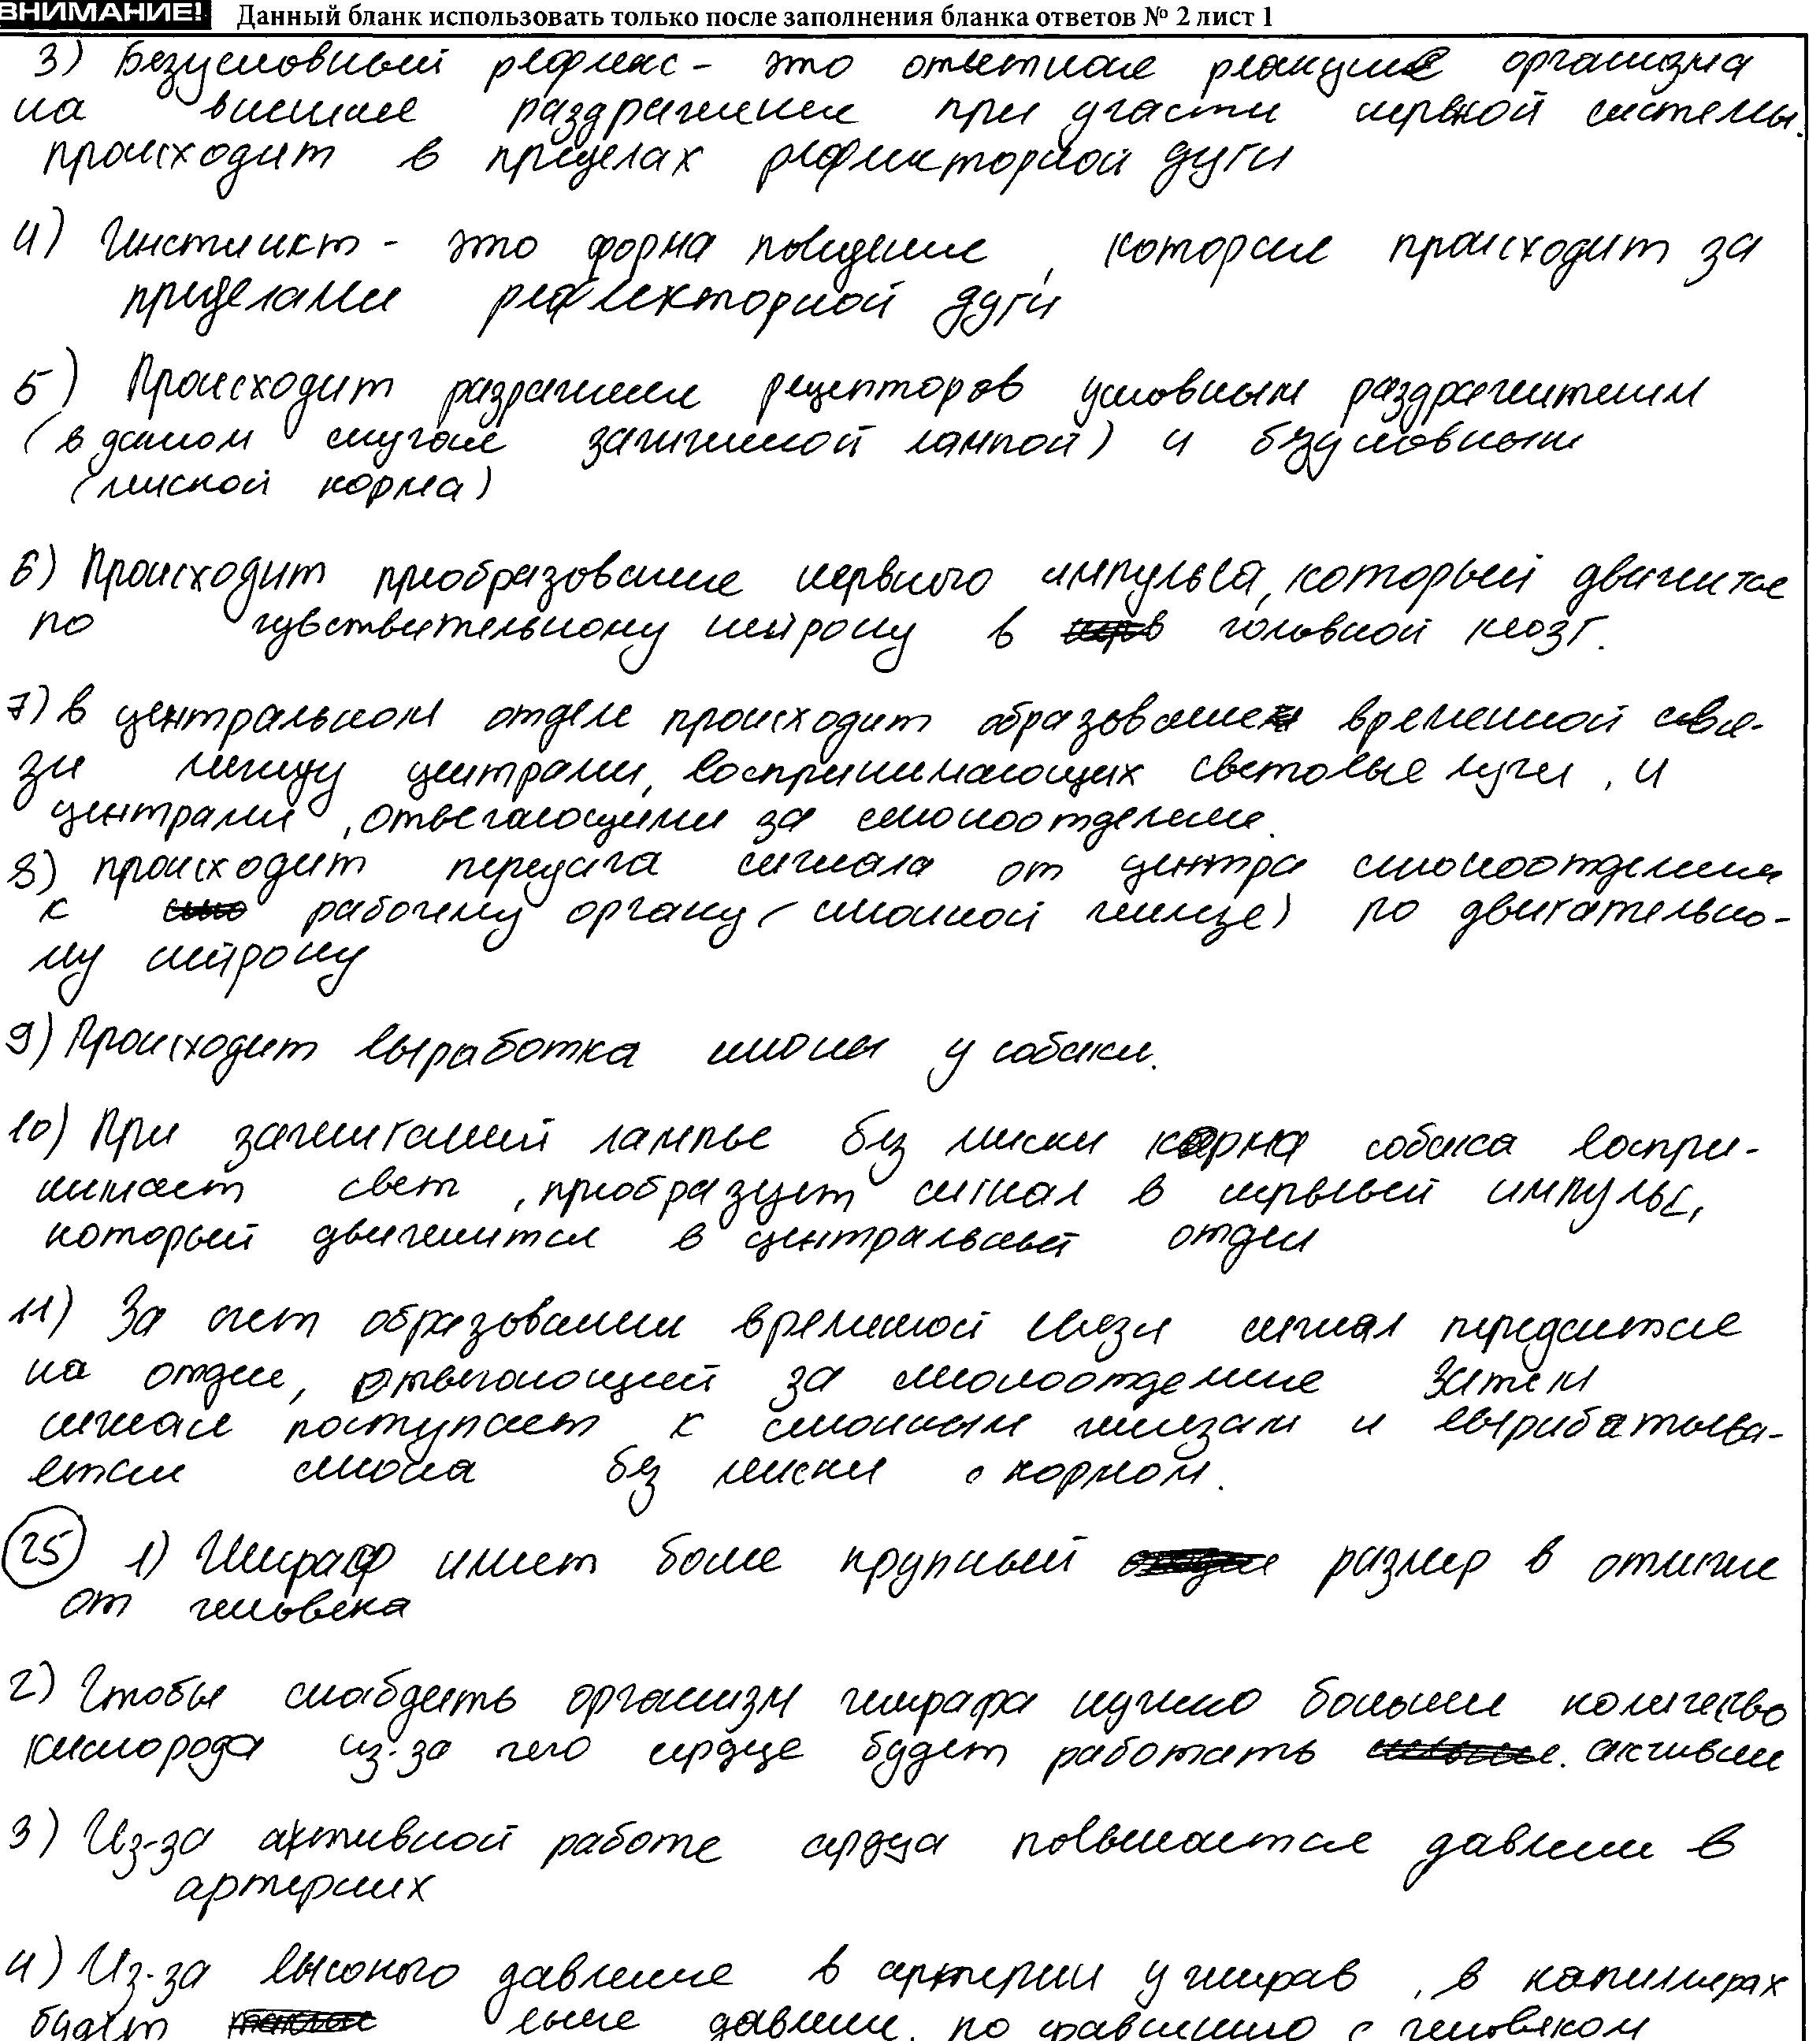 ВНИМАНИЕ! Данный бланк использовать только после заполнения бланка ответов № 2 лист 1
3) Безусловный рефлекс - это ответная реакция организма
на внешнее раздражение при участи нервной системы.
происходит в пределах рефлекторной дуги
4) Инстинкт - это форма поведения, которая происходит за
пределами рефлекторной дуги
5) Происходит раздражение рецепторов условным раздражителем
(в данном случае зажженной лампой) и безусловным
(миской корма)
6) Происходит преобразование нервного импульса, который движится
по чувствительному нейрону в головной мозг.
7) в центральном отделе происходит образование временной свя-
зи между центрами, воспринимающих световые лучи, и
центрами, отвечающими за слюноотделение.
8) происходит передача сигнала от центра слюноотделения
к рабочему органу (слюнной железе) по двигательно-
му нейрону
9) Происходит выработка слюны у собаки.
10) При зажигании лампы без миски корма собака воспри-
нимает свет, преобразует сигнал в нервный импульс,
который движенится в центральный отдел
11) За счет образования временной связи сигнал передается
на отдел, отвечающий за слюноотделение Затем
сигнал поступает к слюнным железам и вырабатыва-
ется слюна без миски с кормом.
25 1) Жираф имеет более крупный размер в отличие
от человека
2) Чтобы снабдить организм жирафа нужно большее количество
кислорода из-за чего сердце будет работать активнее
3) Из-за активной работе сердца повышается давление в
артериях
4) Из-за высокого давления в артерии у жирав, в капиллярах
будет выше давление по сравнению с человеком